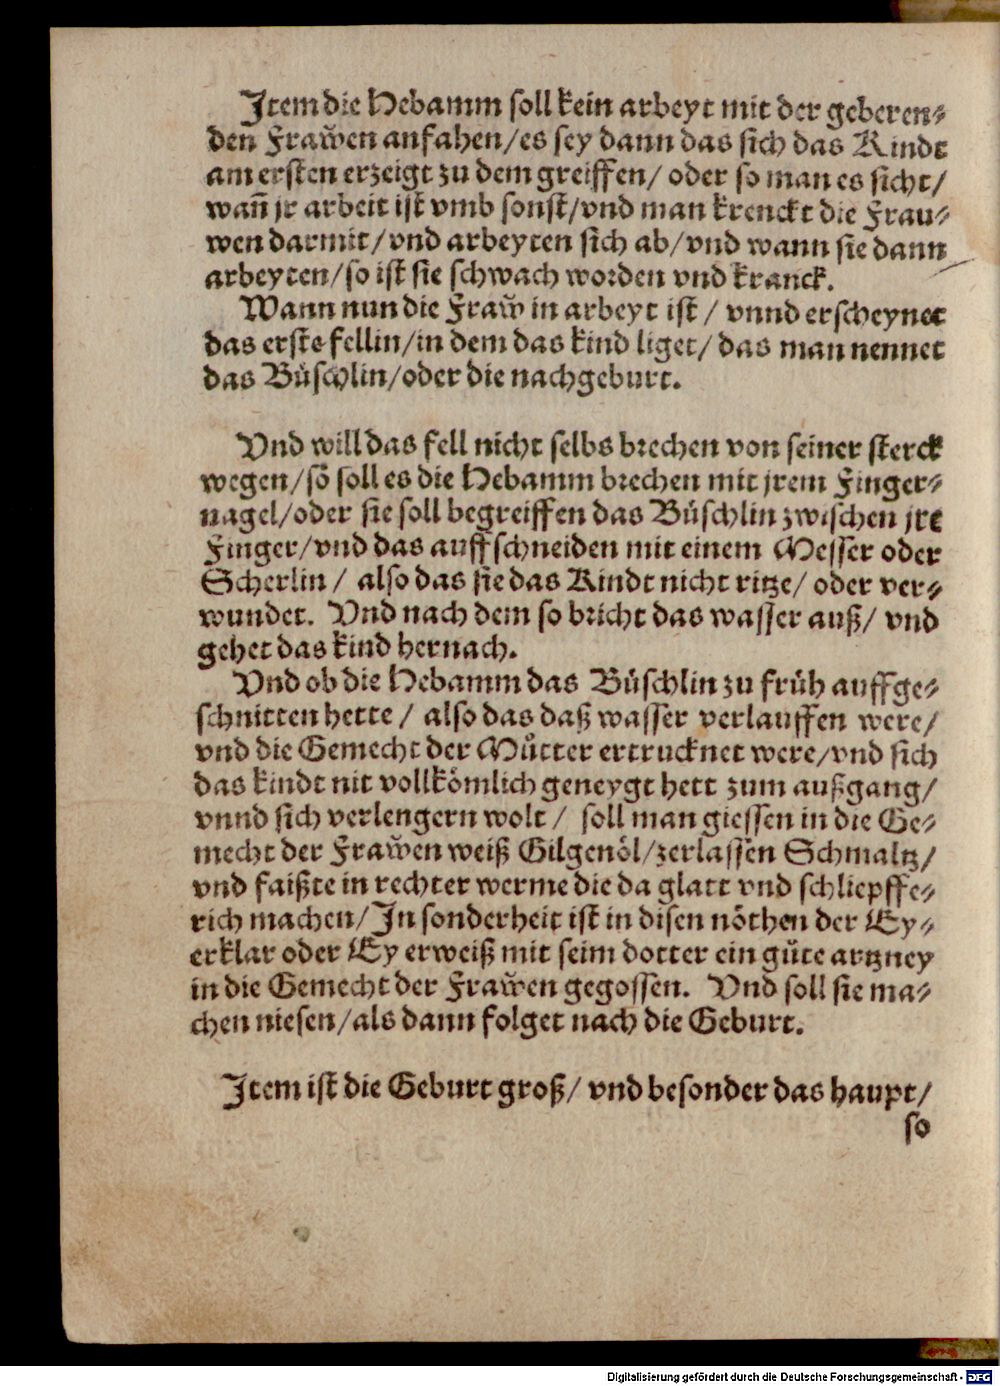 Item die Hebamm soll kein arbeyt mit der geberen⸗
den Frawen anfahen/es sey dann das sich das Kindt
am ersten erzeigt zu dem greiffen/ oder so man es sicht/
wañ jr arbeit ist vmb sonst/vnd man krenckt die Frau⸗
wen darmit/vnd arbeyten sich ab/vnd wann sie dann
arbeyten/so ist sie schwach worden vnd kranck.
Wann nun die Fraw in arbeyt ist / vnnd erscheynet
das erste fellin/in dem das kind liget/ das man nennet
das Büschlin/oder die nachgeburt.
Vnd will das fell nicht selbs brechen von seiner sterck
wegen/so soll es die Hebamm brechen mit jrem Finger⸗
nagel/oder sie soll begreiffen das Büschlin zwischen jre
Finger/vnd das auffschneiden mit einem Messer oder
Scherlin / also das sie das Kindt nicht ritze/ oder ver⸗
wundet. Vnd nach dem so bricht das wasser auß/ vnd
gehet das kind hernach.
Vnd ob die Hebamm das Büschlin zu früh auffge⸗
schnitten hette / also das daß wasser verlauffen were/
vnd die Gemecht der Muͦtter ertrucknet were/vnd sich
das kindt nit vollkömlich geneygt hett zum außgang/
vnnd sich verlengern wolt / soll man giessen in die Ge⸗
mecht der Frawen weiß Gilgenöl/zerlassen Schmaltz/
vnd faißte in rechter werme die da glatt vnd schliepffe⸗
rich machen/In sonderheit ist in disen nöthen der Ey⸗
erklar oder Ey erweiß mit seim dotter ein guͦte artzney
in die Gemecht der Frawen gegossen. Vnd soll sie ma⸗
chen niesen/als dann folget nach die Geburt.
Item ist die Geburt groß/ vnd besonder das haupt/
so
Digitalisierung gefördert durch die Deutsche Forschungsgemeinschaft - DFG